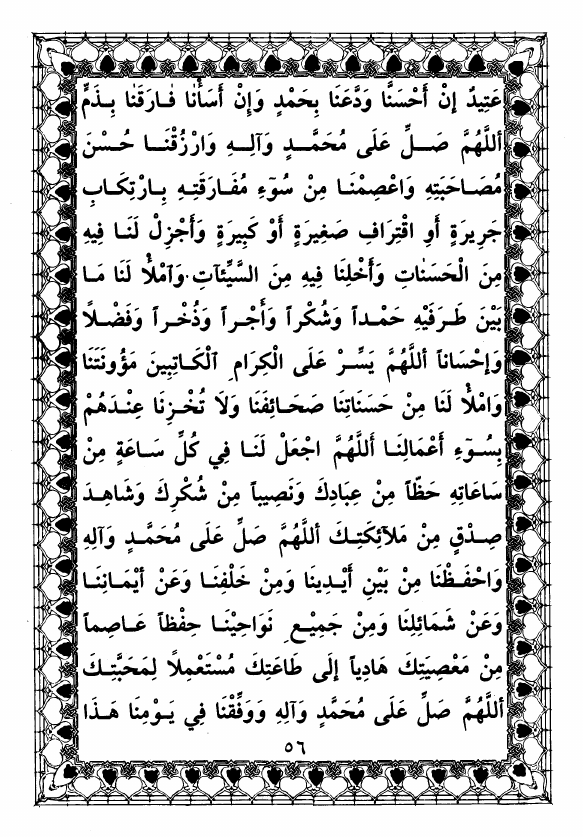 عَتِيدٌ إِنْ أَحْسَنَّا وَدَّعَنَا بِحَمْدٍ وَإِنْ أَسَأْنَا فَارَقَنَا بِذَمٍّ
أَللَّهُمَّ صَلِّ عَلَى مُحَمَّدٍ وَآلِهِ وَارْزُقْنَا حُسْنَ
مُصَاحَبَتِهِ وَاعْصِمْنَا مِنْ سُوٓءِ مُفَارَقَتِهِ بِارْتِكَابِ
جَرِيرَةٍ أَوِ اقْتِرَافِ صَغِيرَةٍ أَوْ كَبِيرَةٍ وَأَجْزِلْ لَنَا فِيهِ
مِنَ الْحَسَنَاتِ وَأَخْلِنَا فِيهِ مِنَ السَّيِّئَاتِ. وَامْلَأْ لَنَا مَا
بَيْنَ طَرَفَيْهِ حَمْداً وَشُكْراً وَأَجْراً وَذُخْراً وَفَضْلاً
وَإِحْسَاناً أَللَّهُمَّ يَسِّرْ عَلَى الْكِرَامِ الْكَاتِبِينَ مَؤُونَتَنَا
وَامْلَأْ لَنَا مِنْ حَسَنَاتِنَا صَحَائِفَنَا وَلَا تُخْزِنَا عِنْدَهُمْ
بِسُوٓءِ أَعْمَالِنَا أَللَّهُمَّ اجْعَلْ لَنَا فِي كُلِّ سَاعَةٍ مِنْ
سَاعَاتِهِ حَظّاً مِنْ عِبَادِكَ وَنَصِيباً مِنْ شُكْرِكَ وَشَاهِدَ
صِدْقٍ مِنْ مَلَآئِكَتِكَ أَللَّهُمَّ صَلِّ عَلَى مُحَمَّدٍ وَآلِهِ
وَاحْفَظْنَا مِنْ بَيْنِ أَيْدِينَا وَمِنْ خَلْفِنَا وَعَنْ أَيْمَانِنَا
وَعَنْ شَمَائِلِنَا وَمِنْ جَمِيْعِ نَوَاحِيْنَا حِفْظاً عَاصِماً
مِنْ مَعْصِيَتِكَ هَادِياً إِلَى طَاعَتِكَ مُسْتَعْمِلاً لِمَحَبَّتِكَ
أَللَّهُمَّ صَلِّ عَلَى مُحَمَّدٍ وَآلِهِ وَوَفِّقْنَا فِي يَوْمِنَا هَذَا
٥٦